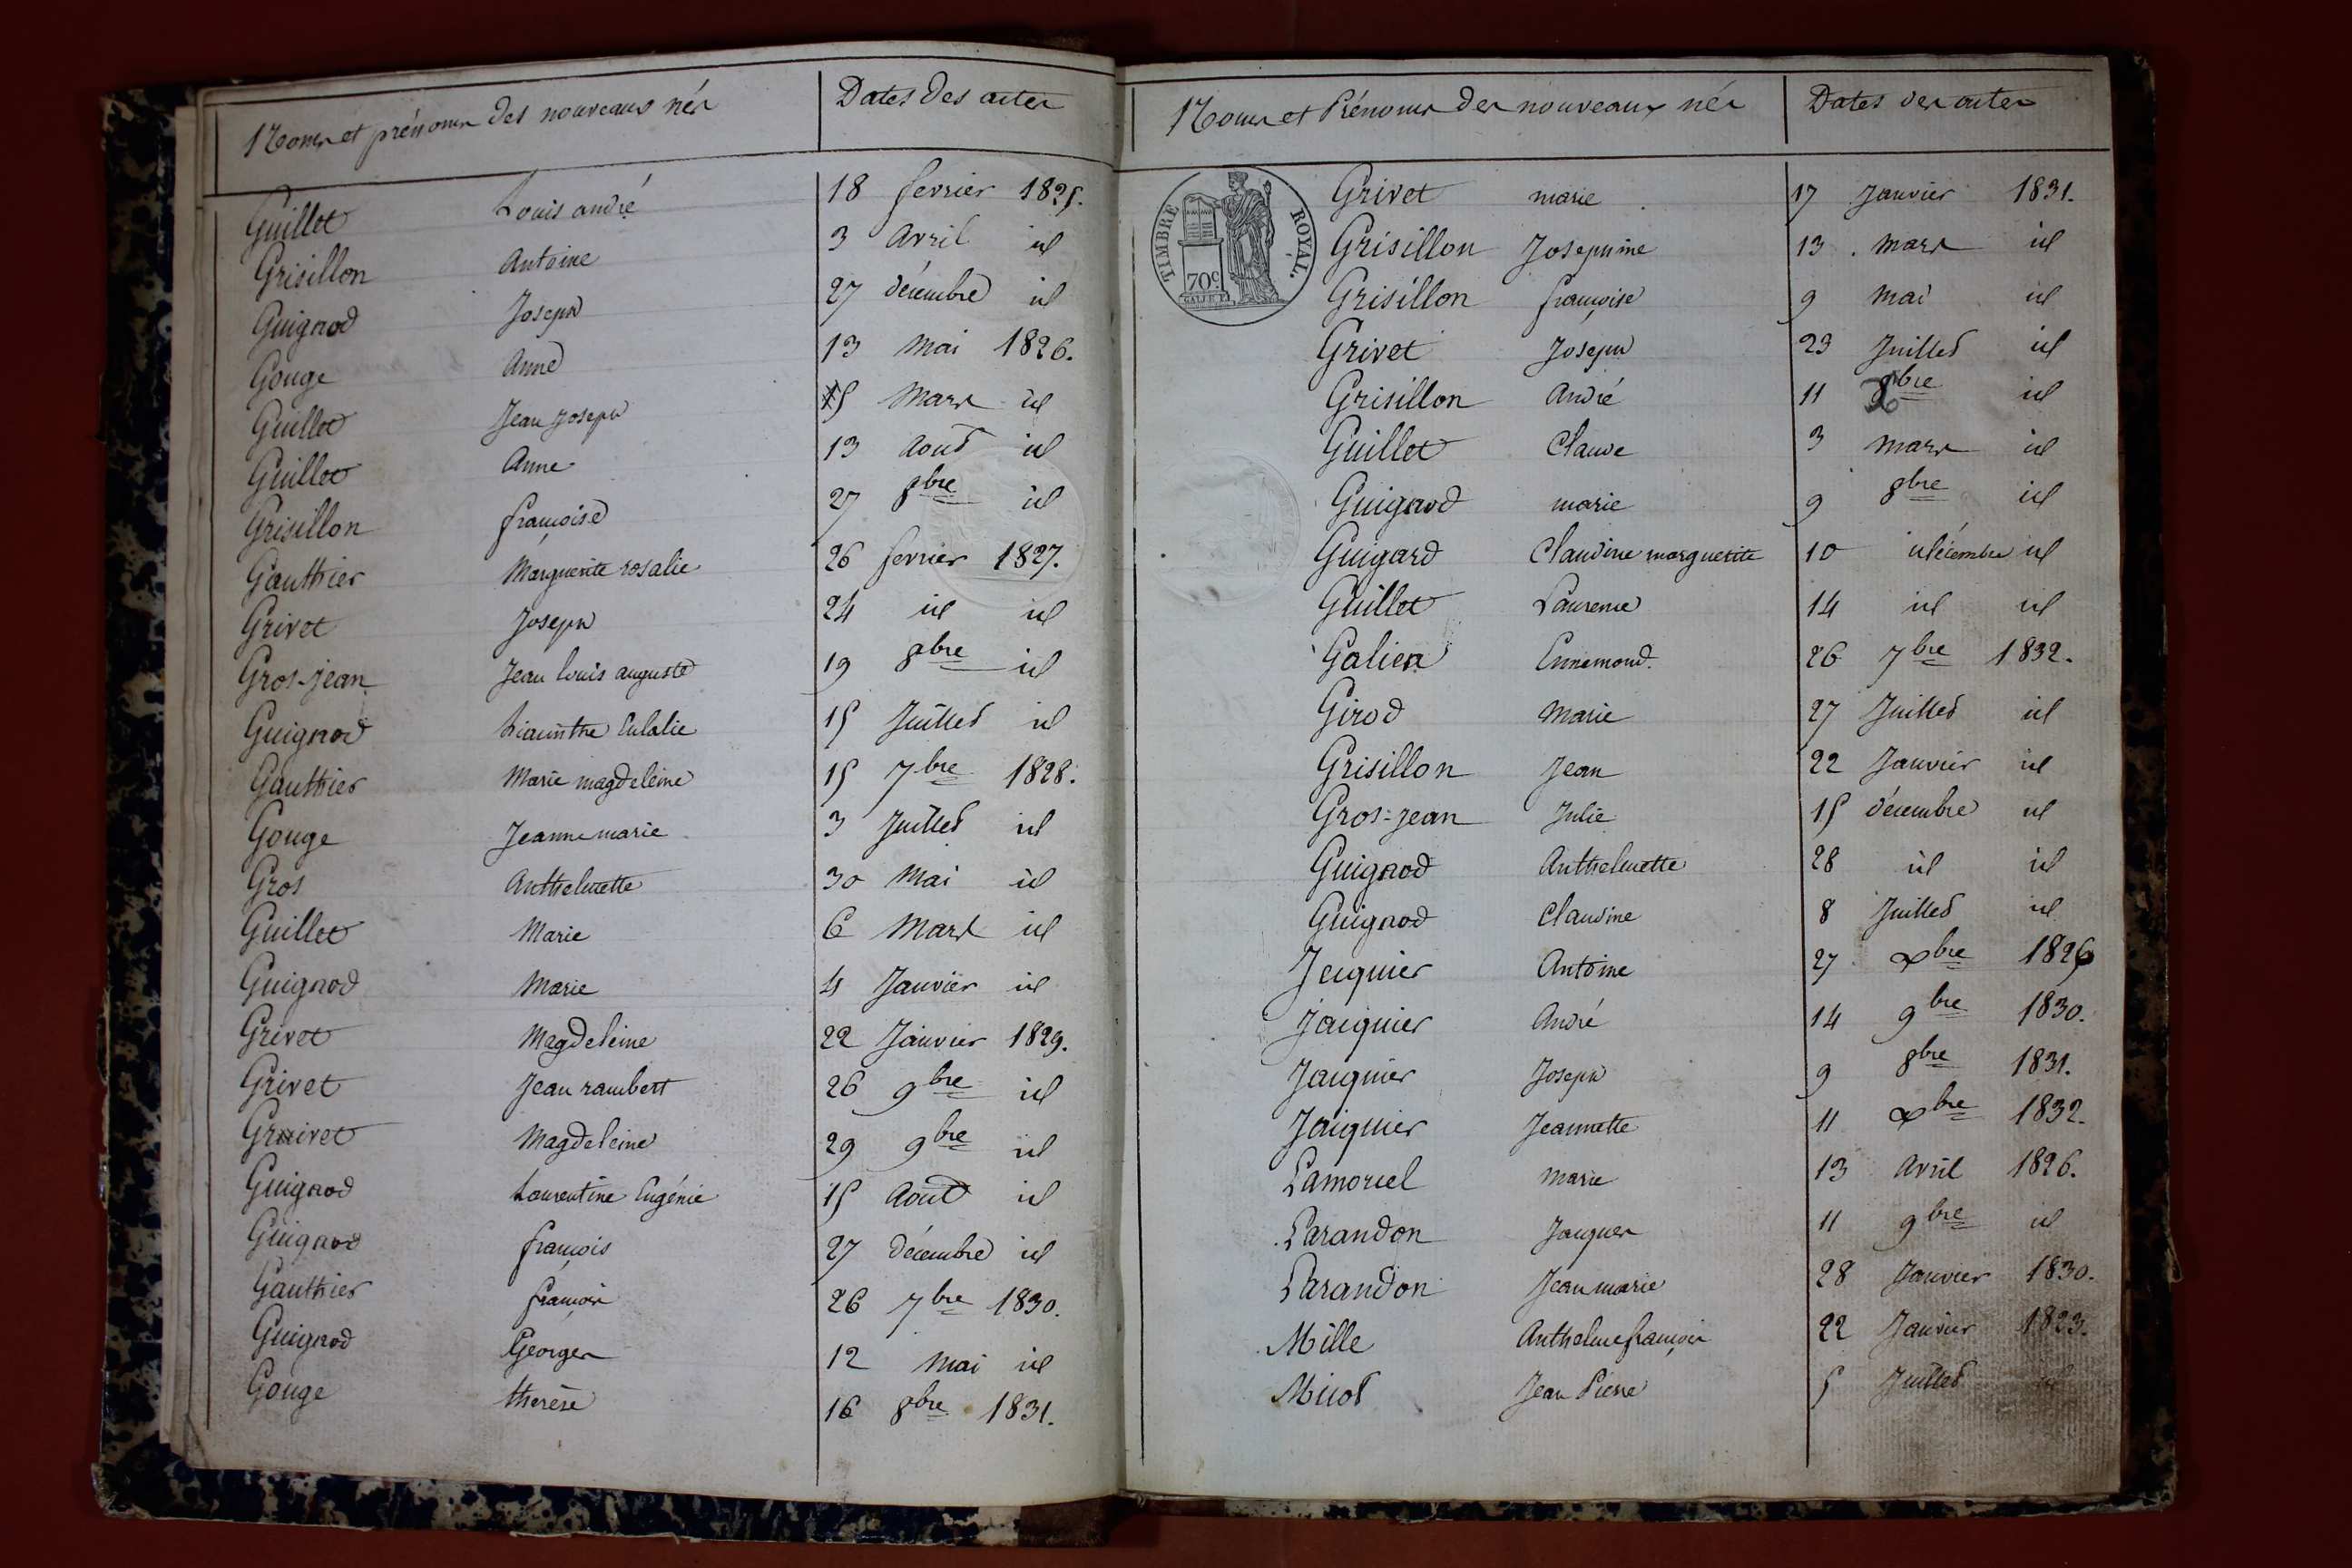 Noms et prénoms des nouveaux nés Dates des actes
Guillet Louis andré 18 fevrier 1825.
Grisillon Antoine 3 Avril id
Guignod Joseph 27 décembre id
Gouge Anne 13 Mai 1826.
Guillet Jean Joseph 5 Mars id
Guillet Anne 13 Aout id
Grisillon françoise 27 8bre id
Gauthier Marguerite rosalie 26 fevrier 1827.
Grivet Joseph 24 id id
Gros-jean Jean louis auguste 19 8bre id
Guignod hiacinthe Eulalie 15 Juillet id
Gauthier Marie magdeleine 15 7bre 1828.
Gouge Jeanne marie 3 Juillet id
Gros Anthelmette 30 Mai id
Guillet Marie 6 Mars id
Guignod Marie 4 Janvier id
Grivet Magdeleine 22 Janvier 1829.
Grivet Jean rambert 26 9bre id
Grivet Magdeleine 29 9bre id
Guignod Laurentine Eugénie 15 Août id
Guignod françois 27 décembre id
Gauthier françois 26 7bre 1830.
Guignod Georges 12 Mai id
Gouge therèse 16 8bre 1831.
Noms et Prénoms des nouveaux nés Dates des actes
TIMBRE ROYAL.
70c
Grivet marie 17 Janvier 1831.
Grisillon Josephine 13 mars id
Grisillon françoise 9 mai id
Grivet Joseph 23 Juillet id
Grisillon André 11 8bre id
Guillet Claude 3 mars id
Guignod marie 9 8bre id
Guigard Claudine marguerite 10 décembre id
Guillet Laurence 14 id id
Galien Ennemond. 26 7bre 1832.
Girod Marie 27 Juillet id
Grisillon Jean 22 Janvier id
Gros-jean Julie 15 décembre id
Guignod Anthelmette 28 id id
Guignod Claudine 8 Juillet id
Jecquier Antoine 27 xbre 1826
Jacquier André 14 9bre 1830.
Jacquier Joseph 9 8bre 1831.
Jacquier Jeannette 11 xbre 1832.
Lamoruel Marie 13 Avril 1826.
Parandon Jacques 11 9bre id
Parandon Jean marie 28 Janvier 1830.
Mille Anthelme françois 22 Janvier 1823.
Micot Jean Pierre 5 Juillet id